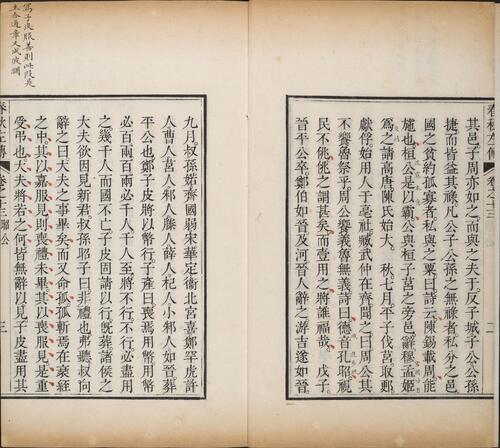 春秋左傳 卷之十三
其邑子周亦如之而與之夫于反子城子公公孫
捷而皆益其祿凡公子公孫之無祿者私分之邑
國之貧約孤寡者私與之粟曰詩云陳錫載周能
施也桓公是以霸公與桓子莒之旁邑辭穆孟姬
爲之請高唐陳氏始大 秋七月平子伐莒取郠
獻俘始用人于亳社臧武仲在齊聞之曰周公其
不饗魯祭乎周公饗義魯無義詩曰德音孔昭視
民不佻佻之謂甚矣而壹用之將誰福哉 戊子
晉平公卒鄭伯如晉及河晉人辭之游吉遂如晉
九月叔孫婼齊國弱宋華定衞北宮喜鄭罕虎許
人曹人莒人邾人滕人薛人杞人小邾人如晉葬
平公也鄭子皮將以幣行子產曰喪焉用幣用幣
必百兩百兩必千人千人至將不行不行必盡用
之幾千人而國不亡子皮固請以行既葬諸侯之
大夫欲因見新君叔孫昭子曰非禮也弗聽叔向
辭之曰大夫之事畢矣而又命孤孤斬焉在衰絰
之中其以嘉服見則喪禮未畢其以喪服見是重
受弔也大夫將若之何皆無辭以見子皮盡用其
春秋左傳 卷之十三 昭公 三